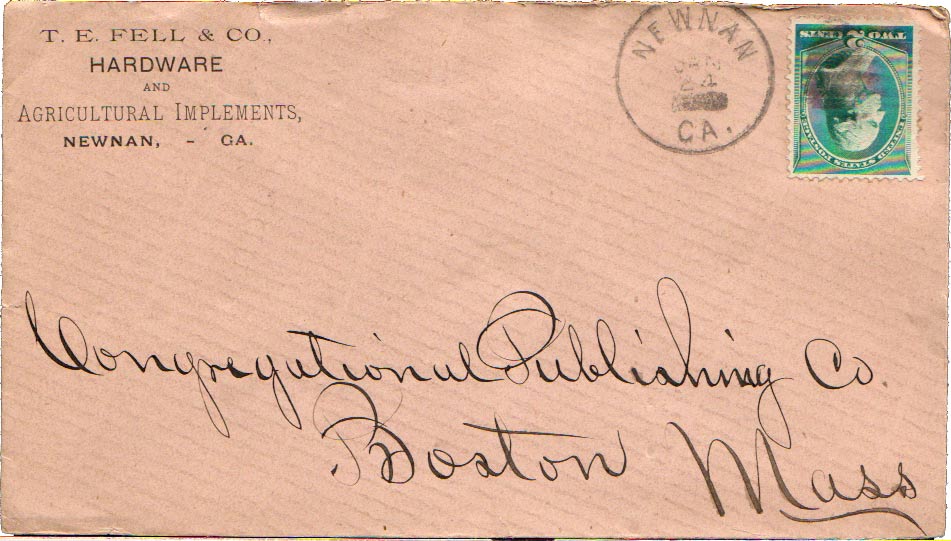 T. E. FELL & CO.,
HARDWARE
AND
AGRICULTURAL IMPLEMENTS,
NEWNAN, - GA.
NEWNAN
JAN
24
GA.
TWO 2 CENTS
UNITED STATES POSTAGE
Congregational Publishing Co.
Boston Mass